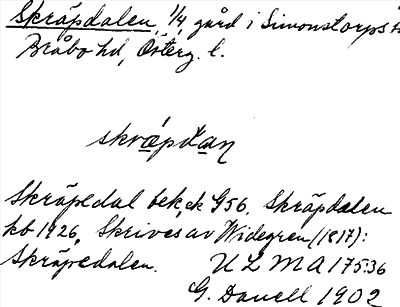 Skräpdalen 1/4 gård i Simonstorps s
Bråbo hd, Österg. l.
skrǟpdan
Skräpedal bek, ek G56. Skräpdalen
kb 1926, Skrives av Widegren (1817):
Skräpedalen. ULMA 175:36
G. Danell 1902